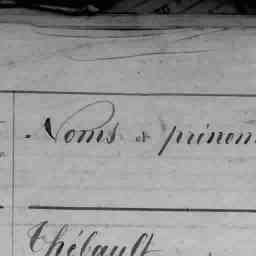 Noms et prénom
Thébault